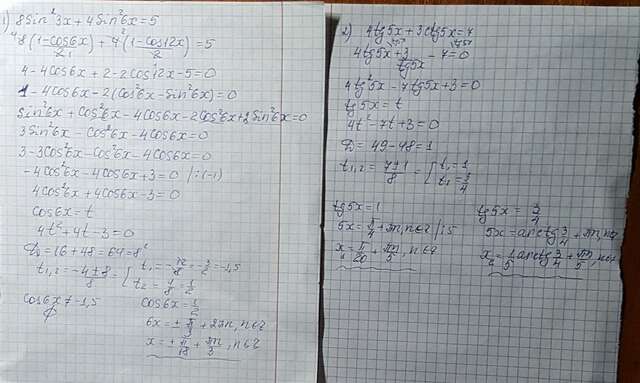 1) 8sin²3x + 4sin²6x = 5
⁴8(1-cos6x)/2₁ + 4²(1-cos12x)/2 = 5
4-4cos6x+2-2cos12x-5=0
1-4cos6x-2(cos²6x-sin²6x)=0
sin²6x+cos²6x-4cos6x-2cos²6x+2sin²6x=0
3sin²6x-cos²6x-4cos6x=0
3-3cos²6x-cos²6x-4cos6x=0
-4cos²6x-4cos6x+3=0 /:(-1)
4cos²6x+4cos6x-3=0
cos6x=t
4t²+4t-3=0
D=16+48=64=8²
t₁,₂=(-4±8)/8={t₁=-12/8=-3/2=-1,5
t₂=4/8=1/2
cos6x≠-1,5 cos6x=1/2
∅
6x=±π/3+2πn, n∈z
x=±π/18+πn/3, n∈z
2) 4tg5x+3ctg5x=7
4tg5x+3/tg5x-7=0
4tg²5x-7tg5x+3=0
tg5x=t
4t²-7t+3=0
D=49-48=1
t₁,₂=(7±1)/8={t₁=1
t₁=3/4
tg5x=1 tg5x=3/4
5x=π/4+πn, n∈z /:5 5x=arctg3/4+πn, n∈z
x=π/20+πn/5, n∈z x=1/5arctg3/4+πn/5, n∈z